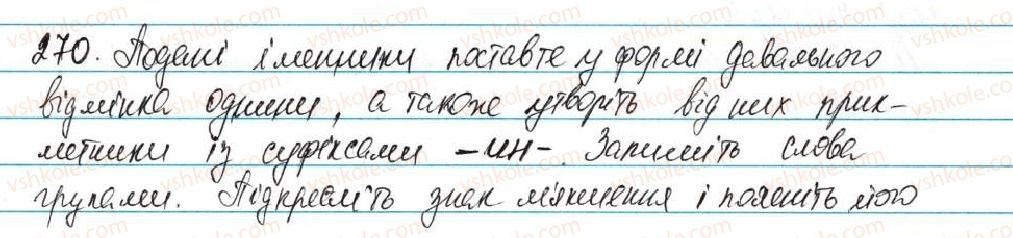 270. Подані іменники поставте у формі давального
відмінка однини, а також утворіть від них прик-
метники із суфіксами -ин-. Запишіть слова
групами. Підкресліть знак м'якшення і поясніть його